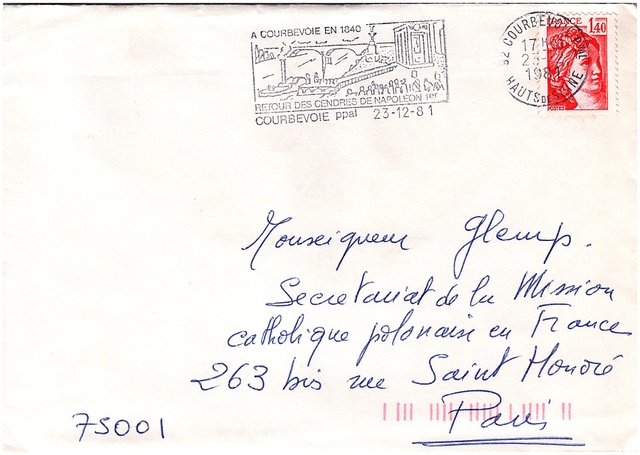 A COURBEVOIE EN 1840
RETOUR DES CENDRES DE NAPOLEON 1er
COURBEVOIE ppal 23-12-81
92 COURBEVOIE PPAL
17 H
23-
198
HAUTS DE SEINE
FRANCE 1,40
POSTES
Monseigneur Glemp.
Secretariat de la Mission
catholique polonaise en France
263 bis rue Saint Honoré
Paris
75001